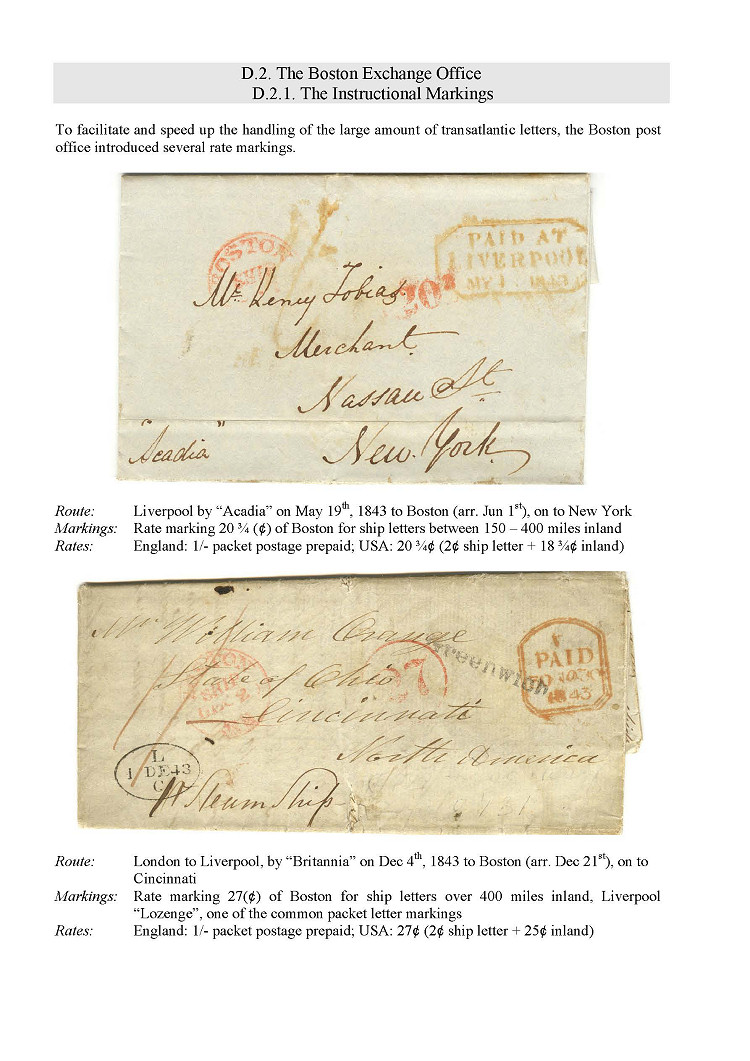 D.2. The Boston Exchange Office
D.2.1. The Instructional Markings
To facilitate and speed up the handling of the large amount of transatlantic letters, the Boston post
office introduced several rate markings.
BOSTON
PAID AT
LIVERPOOL
20
Mr. Henry Tobias
Merchant
Nassau St
"Acadia"
New York
Route: Liverpool by “Acadia” on May 19th, 1843 to Boston (arr. Jun 1st), on to New York
Markings: Rate marking 20 ¾ (¢) of Boston for ship letters between 150 – 400 miles inland
Rates: England: 1/- packet postage prepaid; USA: 20 ¾¢ (2¢ ship letter + 18 ¾¢ inland)
Mr William Orange
State of Ohio
Cincinnati
North America
27
Greenwich
PAID
1843
L
1 DE 43
pr Steam Ship
Route: London to Liverpool, by “Britannia” on Dec 4th, 1843 to Boston (arr. Dec 21st), on to
Cincinnati
Markings: Rate marking 27(¢) of Boston for ship letters over 400 miles inland, Liverpool
“Lozenge”, one of the common packet letter markings
Rates: England: 1/- packet postage prepaid; USA: 27¢ (2¢ ship letter + 25¢ inland)